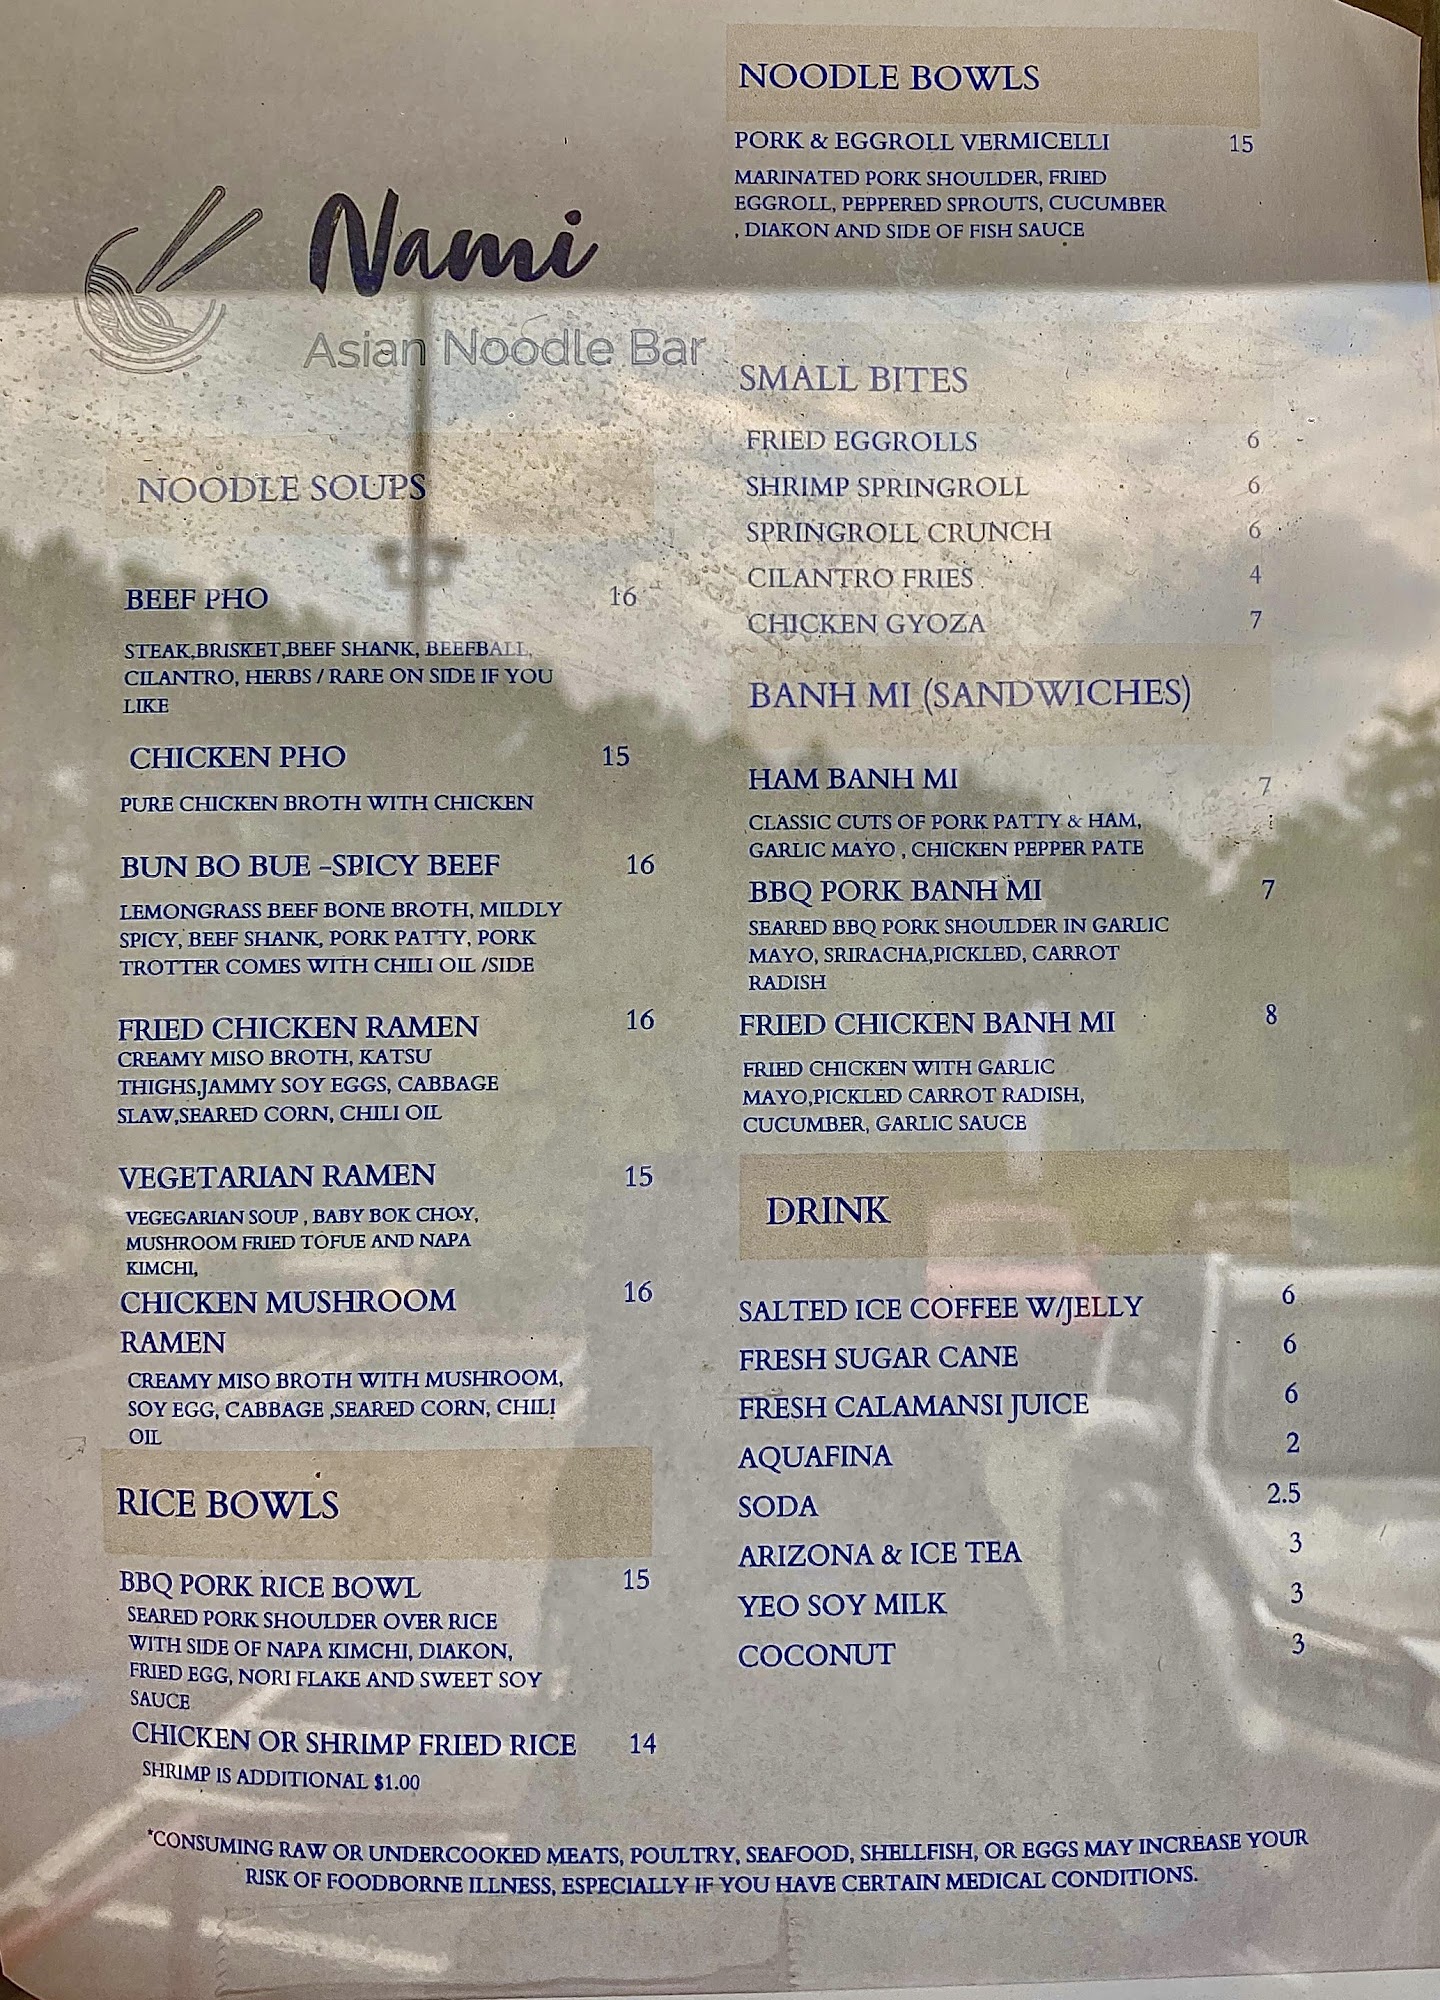 Nami
Asian Noodle Bar
NOODLE SOUPS
BEEF PHO 16
STEAK,BRISKET,BEEF SHANK, BEEFBALL,
CILANTRO, HERBS / RARE ON SIDE IF YOU
LIKE
CHICKEN PHO 15
PURE CHICKEN BROTH WITH CHICKEN
BUN BO BUE -SPICY BEEF 16
LEMONGRASS BEEF BONE BROTH, MILDLY
SPICY, BEEF SHANK, PORK PATTY, PORK
TROTTER COMES WITH CHILI OIL /SIDE
FRIED CHICKEN RAMEN 16
CREAMY MISO BROTH, KATSU
THIGHS,JAMMY SOY EGGS, CABBAGE
SLAW,SEARED CORN, CHILI OIL
VEGETARIAN RAMEN 15
VEGEGARIAN SOUP , BABY BOK CHOY,
MUSHROOM FRIED TOFUE AND NAPA
KIMCHI,
CHICKEN MUSHROOM 16
RAMEN
CREAMY MISO BROTH WITH MUSHROOM,
SOY EGG, CABBAGE ,SEARED CORN, CHILI
OIL
RICE BOWLS
BBQ PORK RICE BOWL 15
SEARED PORK SHOULDER OVER RICE
WITH SIDE OF NAPA KIMCHI, DIAKON,
FRIED EGG, NORI FLAKE AND SWEET SOY
SAUCE
CHICKEN OR SHRIMP FRIED RICE 14
SHRIMP IS ADDITIONAL $1.00
NOODLE BOWLS
PORK & EGGROLL VERMICELLI 15
MARINATED PORK SHOULDER, FRIED
EGGROLL, PEPPERED SPROUTS, CUCUMBER
, DIAKON AND SIDE OF FISH SAUCE
SMALL BITES
FRIED EGGROLLS 6
SHRIMP SPRINGROLL 6
SPRINGROLL CRUNCH 6
CILANTRO FRIES 4
CHICKEN GYOZA 7
BANH MI (SANDWICHES)
HAM BANH MI 7
CLASSIC CUTS OF PORK PATTY & HAM,
GARLIC MAYO , CHICKEN PEPPER PATE
BBQ PORK BANH MI 7
SEARED BBQ PORK SHOULDER IN GARLIC
MAYO, SRIRACHA,PICKLED, CARROT
RADISH
FRIED CHICKEN BANH MI 8
FRIED CHICKEN WITH GARLIC
MAYO,PICKLED CARROT RADISH,
CUCUMBER, GARLIC SAUCE
DRINK
SALTED ICE COFFEE W/JELLY 6
FRESH SUGAR CANE 6
FRESH CALAMANSI JUICE 6
AQUAFINA 2
SODA 2.5
ARIZONA & ICE TEA 3
YEO SOY MILK 3
COCONUT 3
*CONSUMING RAW OR UNDERCOOKED MEATS, POULTRY, SEAFOOD, SHELLFISH, OR EGGS MAY INCREASE YOUR
RISK OF FOODBORNE ILLNESS, ESPECIALLY IF YOU HAVE CERTAIN MEDICAL CONDITIONS.